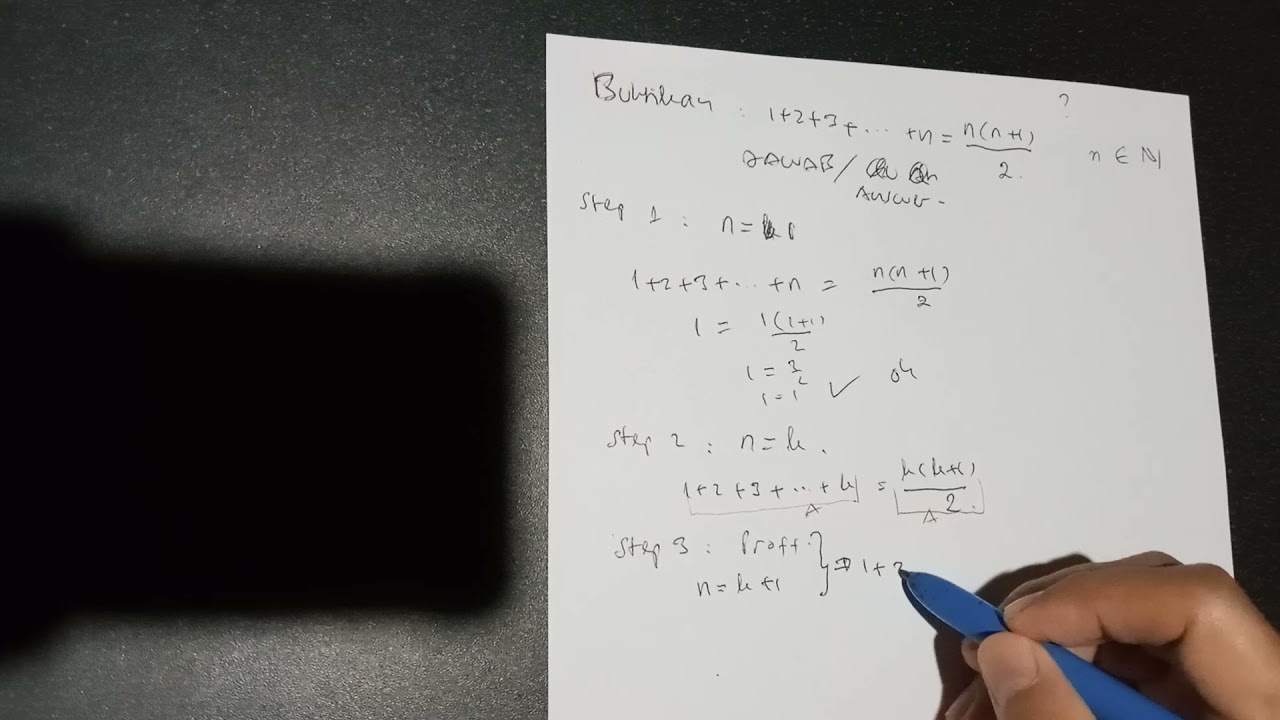 Buktikan : 1+2+3+... +n = n(n+1)/2 ? n ∈ ℕ
JAWAB / Answer -
Step 1 : n = 1
1+2+3+... +n = n(n+1)/2
1 = 1(1+1)/2
1 = 2/2
1 = 1 ✓ ok
Step 2 : n = k .
1+2+3+...+k = k(k+1)/2
A A
Step 3 : Proff. } ⇒ 1+2
n = k+1